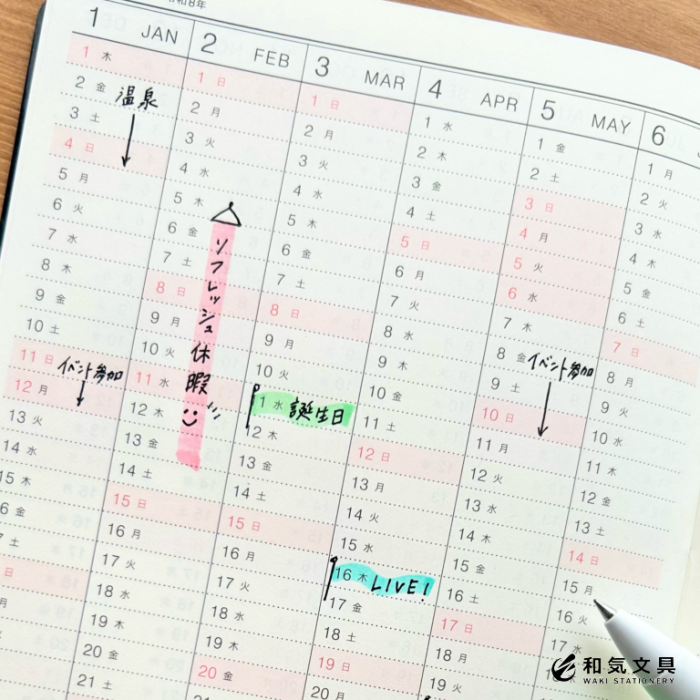 令和8年
1 JAN
1 木
2 金 温泉
3 土
4 日
5 月
6 火
7 水
8 木
9 金
10 土
11 日 イベント参加
12 月
13 火
14 水
15 木
金
土
日
2 FEB
1 日
2 月
3 火
4 水
5 木
6 金
7 土
8 日
9 月
10 火
11 水
12 木
13 金
14 土
15 日
16 月
17 火
18 水
19 木
20 金
21
リフレッシュ休暇
3 MAR
1 日
2 月
3 火
4 水
5 木
6 金
7 土
8 日
9 月
10 火
11 水 誕生日
12 木
13 金
14 土
15 日
16 月
17 火
18 水
19 木
20 金
21
4 APR
1 水
2 木
3 金
4 土
5 日
6 月
7 火
8 水
9 木
10 金
11 土
12 日
13 月
14 火
15 水
16 木 LIVE!
17 金
18 土
19 日
20 月
5 MAY
1 金
2 土
3 日
4 月
5 火
6 水
7 木
8 金 イベント参加
9 土
10 日
11 月
12 火
13 水
14 木
15 金
16 土
17 日
18 月
19 火
6
1 月
2 火
3 水
4 木
5 金
6 土
7 日
8 月
9 火
10 水
11 木
12 金
13 土
14 日
15 月
16 火
17 水
和気文具
WAKI STATIONERY